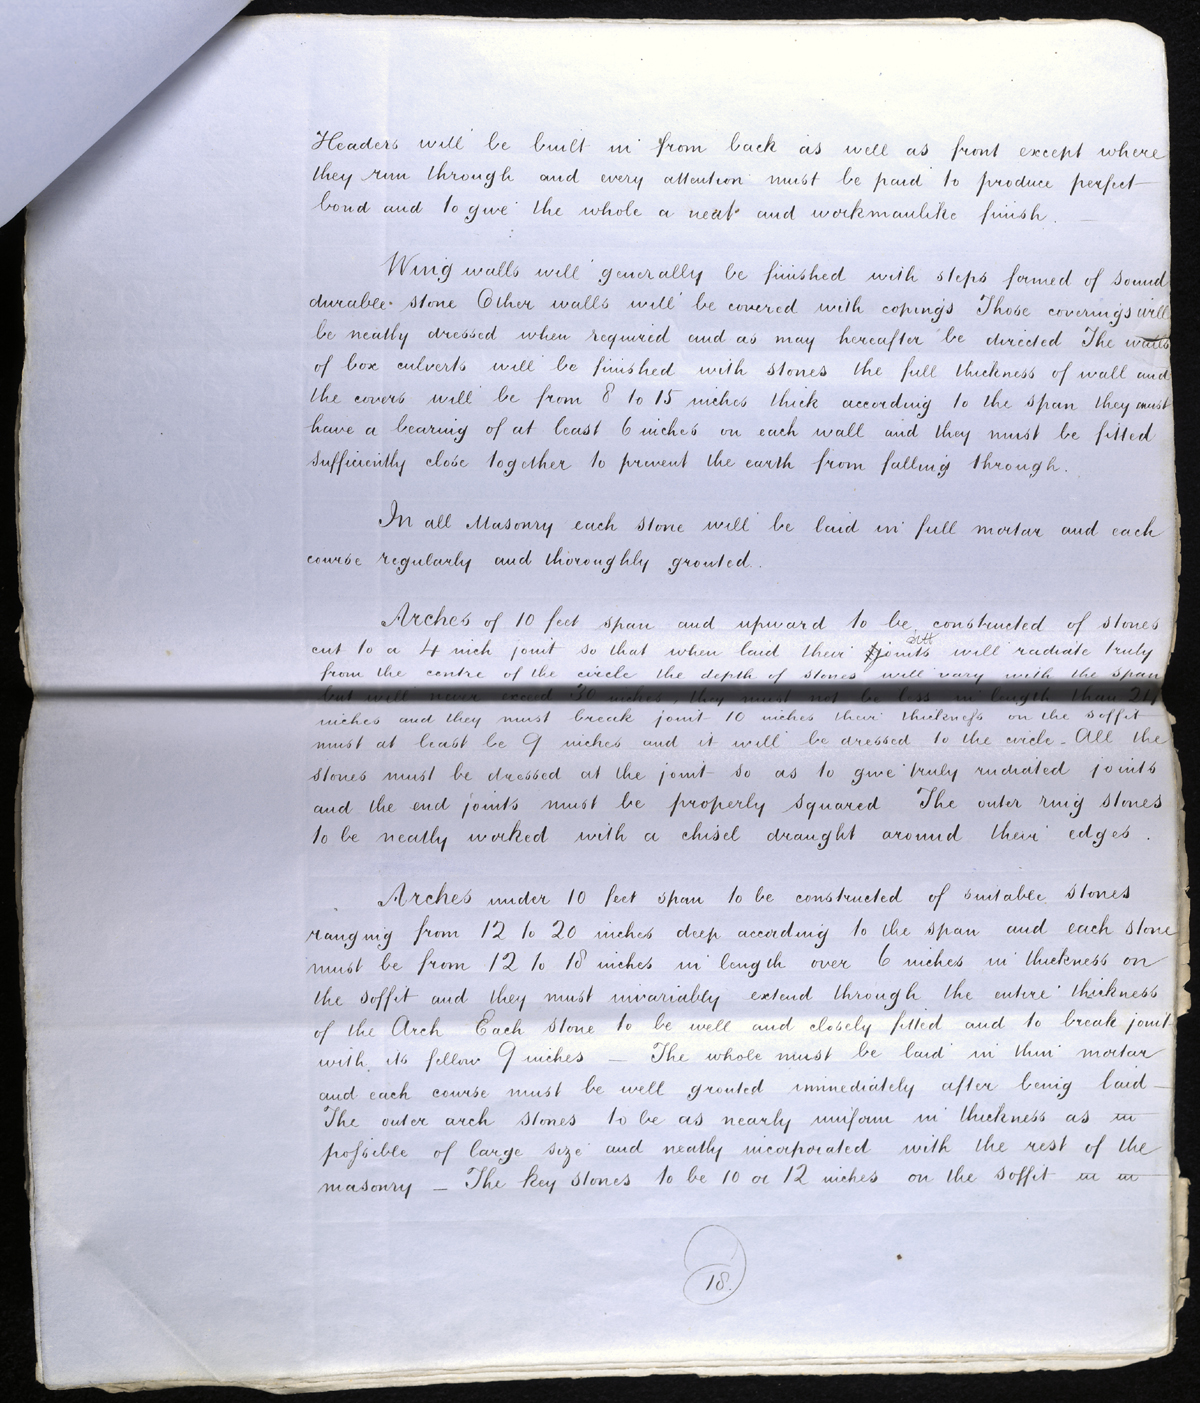 Headers will be built in from back as well as front except where
they run through and every attention must be paid to produce perfect
bond and to give the whole a neat and workmanlike finish.
Wing walls will generally be finished with steps formed of sound
durable stone Other walls will be covered with copings Those coverings will
be neatly dressed when required and as may hereafter be directed The walls
of box culverts will be finished with stones the full thickness of wall and
the covers will be from 8 to 15 inches thick according to the span they must
have a bearing of at least 6 inches on each wall and they must be fitted
sufficiently close together to prevent the earth from falling through.
In all Masonry each stone will be laid in full mortar and each
course regularly and thoroughly grouted.
Arches of 10 feet span and upward to be constructed of stones
cut to a 4 inch joint so that when laid their joints will radiate truly
from the centre of the circle the depth of stones will vary with the span
but will never exceed 30 inches, they must not be less in length than 24
inches and they must break joint 10 inches their thickness on the soffit
must at least be 9 inches and it will be dressed to the circle - All the
stones must be dressed at the joint so as to give truly radiated joints
and the end joints must be properly squared The outer ring stones
to be neatly worked with a chisel draught around their edges.
Arches under 10 feet span to be constructed of suitable stones
ranging from 12 to 20 inches deep according to the span and each stone
must be from 12 to 18 inches in length over 6 inches in thickness on
the soffit and they must invariably extend through the entire thickness
of the Arch Each stone to be well and closely fitted and to break joint
with its fellow 9 inches — The whole must be laid in thin mortar
and each course must be well grouted immediately after being laid —
The outer arch stones to be as nearly uniform in thickness as
possible of large size and neatly incorporated with the rest of the
masonry — The key stones to be 10 or 12 inches on the soffit
18.